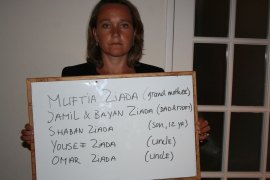 MUFTIA ZIADA (grand mother)
JAMIL & BAYAN ZIADA (DAD & MOM)
SHABAN ZIADA (son, 12 ys)
YOUSEF ZIADA (uncle)
OMAR ZIADA (uncle)